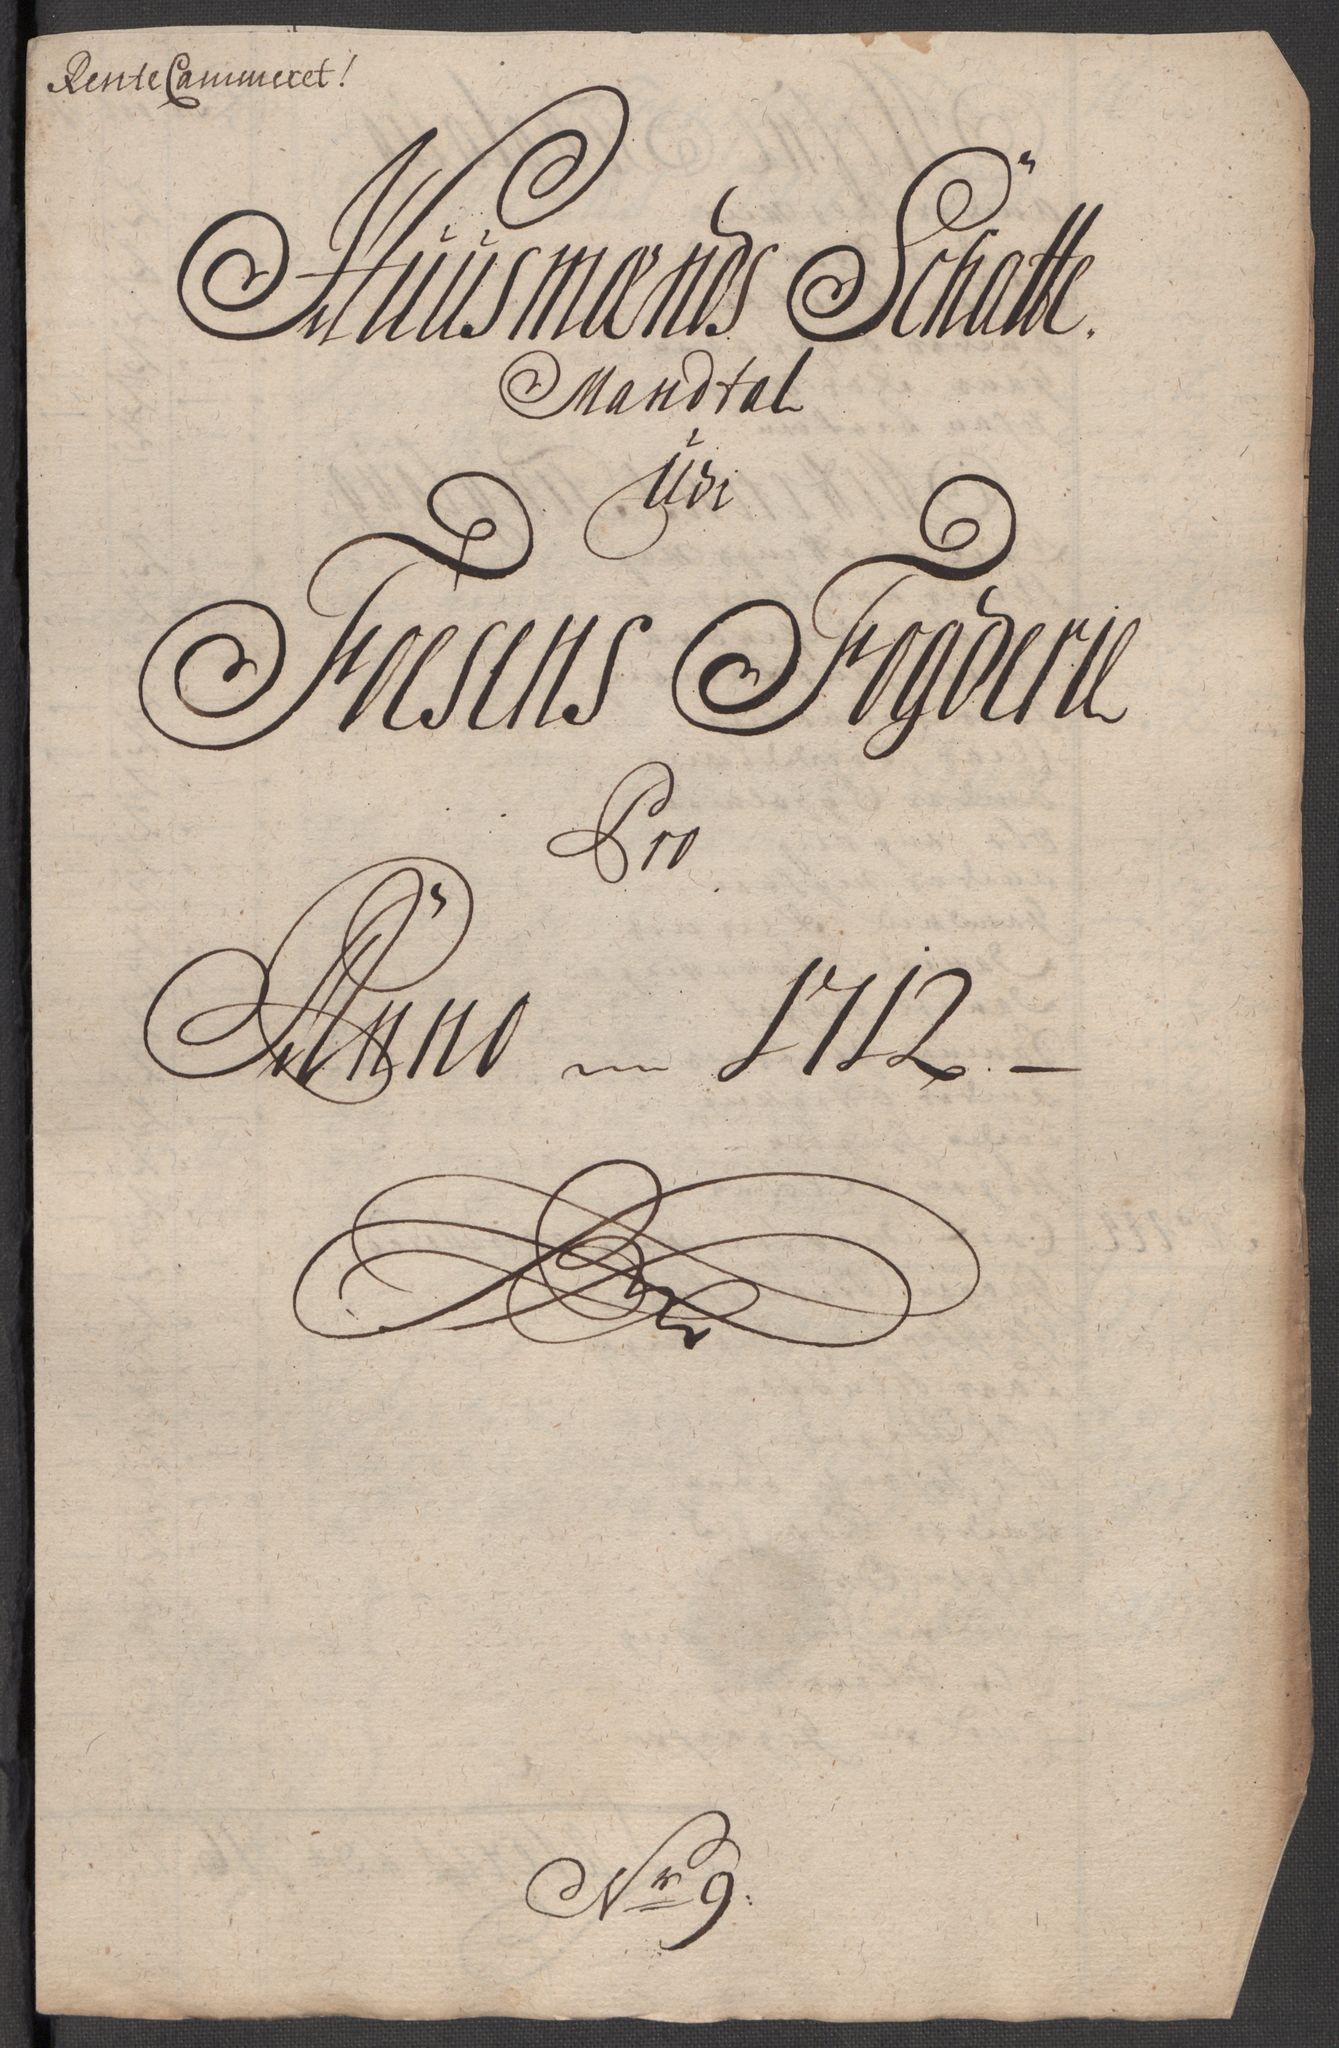 RenteCammeret!
Huusmænds Schatte.
Mandtal
Udi
Foesens Fogderie
Pro
Anno 1712.
Nr 9.